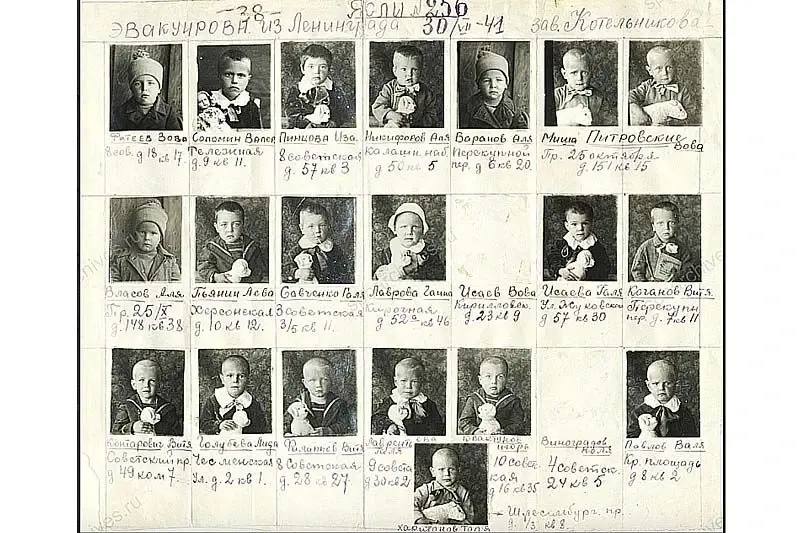 — 28 —
Ясли № 256
Эвакуирован. из Ленинграда 30/VII-41 зав. Котельникова
Фатеев Вова
8 сов. д 18 кв 17.
Соломин Валер
Тележная
д. 9 кв 11.
Пинцова Иза.
8 советская
д. 57 кв 3
Никифоров Аля
Калашн. наб.
д 50 кв 5
Баранов Аля
Перекупной
пер. д 6 кв 20.
Миша Питровские Вова
Пр. 25 октября
д. 151 кв 15
Власов Аля
Пр. 25/X
д. 148 кв 38
Пьянин Лева
Херсонская
д. 10 кв 12.
Савченко Галя
3 советская
3/5 кв 11.
Лаврова Ганна
Кирочная
д 52а кв 46
Исаев Вова
Кирилловск.
д. 23 кв 9
Исаева Галя
Ул. Жуковской
д 57 кв 30
Коганов Витя
Перекупн
пер д. 7 кв 11
Контарович Витя
Советский пр.
д 49 ком 7.
Голубева Лида
Чесменская
ул. д. 2 кв 1.
Филиппев Витя
8 Советская
д. 28 кв 27
Галя
9 советс
д 30 кв 2
Игорь
10 совет-
ская
д 16 кв 35
Виноградов
Коля
4 советск.
д 24 кв 5
Павлов Валя
Кр. площадь
д 8 кв 2
Харитонов Толя
— Шлессинбург. пр.
д. 1/3 кв 8.